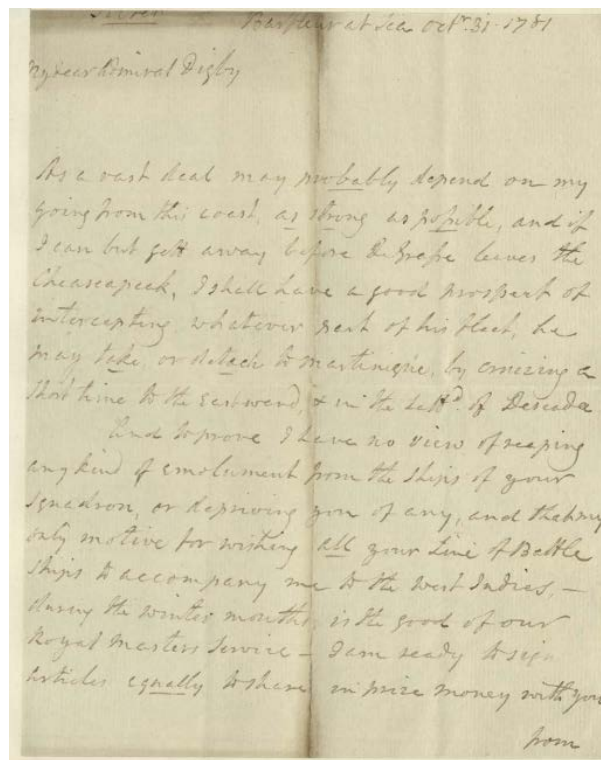 Secret Barfleur at Sea Octr. 31 - 1781
My dear Admiral Digby
As a vast deal may probably depend on my
going from this coast, as strong as possible, and if
I can but gett away before DeGrasse leaves the
Cheaseapeek, I shall have a good prospect of
intercepting whatever part of his fleet, he
may take, or detach to Martinique, by cruizing a
short time to the Eastward, & in the Lattd. of Deseada
And to prove I have no view of reaping
any kind of emolument from the ships of your
squadron, or depriving you of any, and that my
only motive for wishing all your Line of Battle
ships to accompany me to the West Indies, —
during the winter months, is the good of our
Royal Masters Service — I am ready to sign
articles equally to share in prize money with you
from